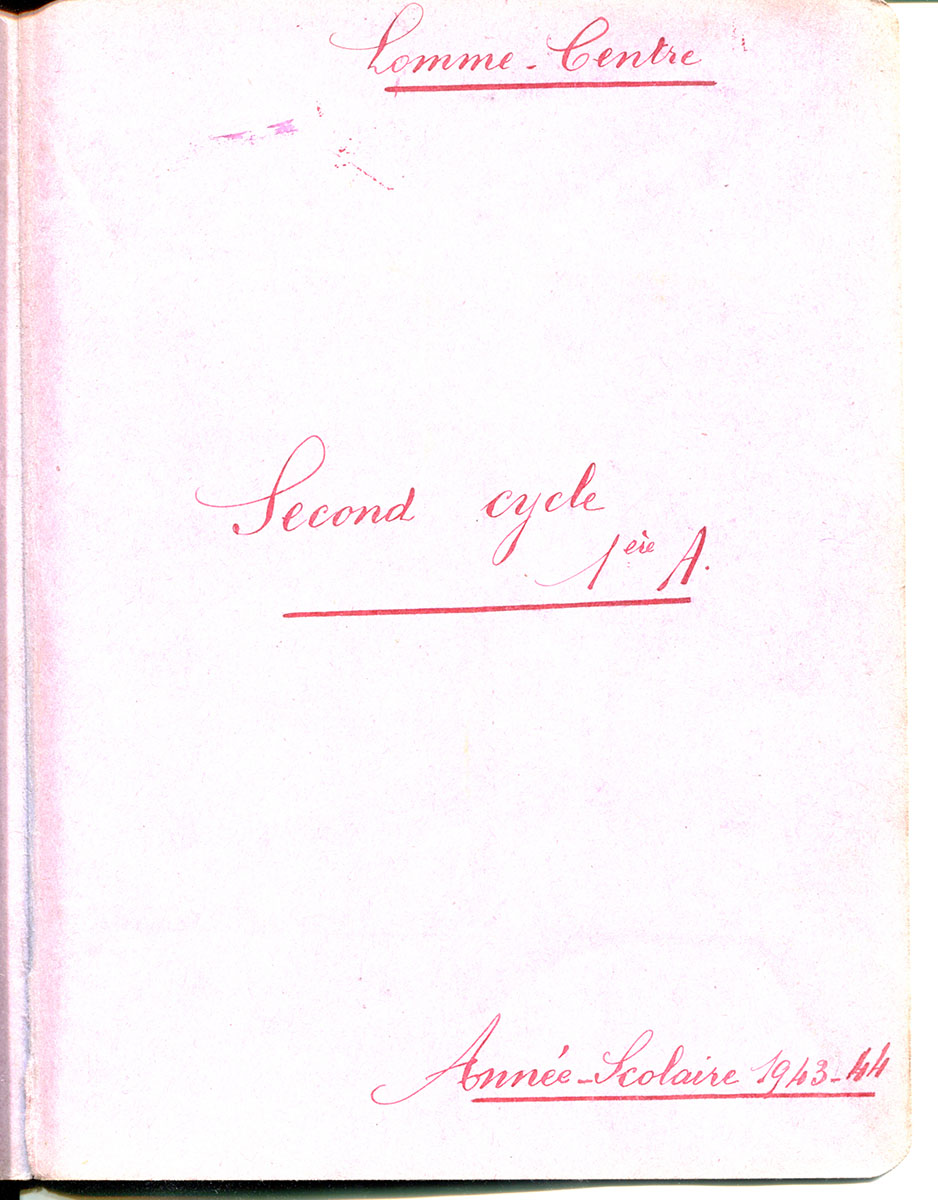 Lomme-Centre
Second cycle
1ère A.
Année-Scolaire 1943-44